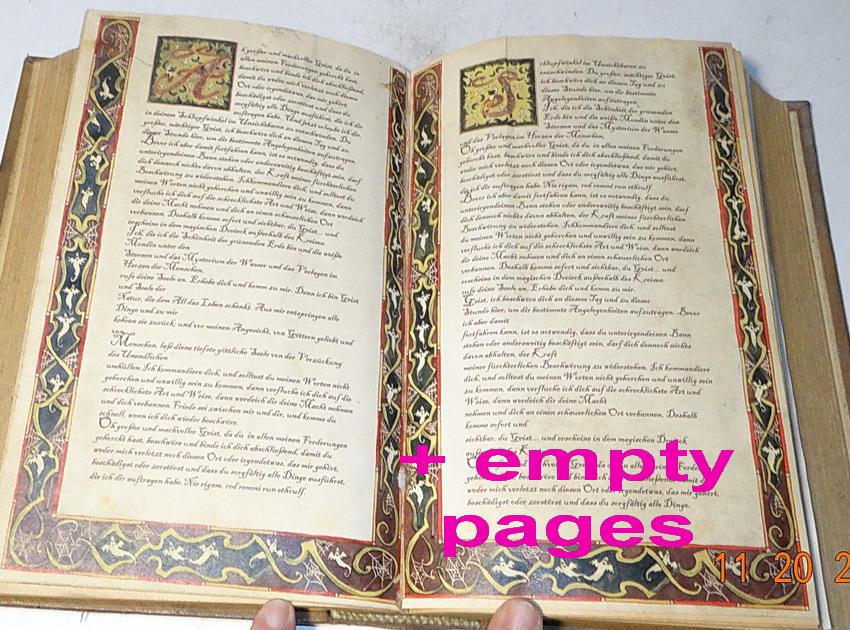 Oh großer und machtvoller Geist, da du in
allen meinen Forderungen gehorcht hast,
beschwöre und binde ich dich abschließend,
damit du wder mich verletzt noch diesen
Ort oder irgendetwas, das mir gehört,
beschädigst oder zerstörst und dass du
sorgfältig alle Dinge ausführst, die ich dir
auftragen habe. Und jetzt erlaube ich dir,
in deinem Schlupfwinkel im Unsichtbaren zu entschwinden. Du
großer, mächtiger Geist, ich beschwöre dich an diesem Tag und zu
dieser Stunde hier, um dir bestimmte Angelegenheiten aufzutragen.
Bevor ich aber damit fortfahren kann, ist es notwendig, dass du
unterirgendeinen Bann stehen oder anderswoitig beschäftigt sein, darf
dich dennoch nichts davon abhalten, der Kraft meiner fürchterlichen
Beschwörung zu widerstehen. Ichkommandiere dich, und solltest du
meinen Worten nicht gehorchen und unwillig sein zu kommen, dann
verfluche ich dich auf die schrecklichste Art und Weise, dann werdeich
dir deine Macht nehmen und dich an einen schauerlichen Ort
verbannen. Deshalb komme sofort und sichtbar, du Geist... und
erscheine in dem magischen Dreieck ausserhalb des Kreises.
Ich, die ich die Schönheit der grünenden Erde bin und die weiße
Mondin unter den
Sternen und das Mysterium der Wasser und das Verlagen im
Herzen der Menschen,
rufe deine Seele an. Erhebe dich und komm zu mir. Denn ich bin Geist
und Seele der
Natur, die dem All das Leben schenkt. Aus mir entspringen alle
Dinge und zu mir
kehren sie zurück; und vor meinem Angesicht, von Göttern geliebt und
von
Menschen, laß deine tiefste göttliche Seele von der Verzückung
des Unendlichen
umhüllen. Ich kommandiere dich, und solltest du meinen Worten nicht
gehorchen und unwillig sein zu kommen, dann verfluche ich dich auf die
schrecklichste Art und Weise, dann werdeich dir deine Macht nehmen
und dich verbannen. Friede sei zwischen mir und dir, und komme du
schnell, wenn ich dich wieder beschwöre.
Oh großer und machvoller Geist, da du in allen meinen Forderungen
gehorcht hast, beschwöre und binde ich dich abschließend, damit du
wder mich verletzt noch diesen Ort oder irgendetwas, das mir gehört,
beschädigst oder zerstörst und dass du sorgfältig alle Dinge ausführst,
die ich dir auftragen habe. Nie rigam, rod rommi run sthculf.
chlupfwinkel im Unsichtbaren zu
entschwinden. Du großer, mächtiger Geist,
ich beschwöre dich an diesem Tag und zu
dieser Stunde hier, um dir bestimmte
Angelegenheiten aufzutragen.
Ich, die ich die Schönheit der grünenden
Erde bin und die weiße Mondin unter den
Sternen und das Mysterium der Wasser
und das Verlagen im Herzen der Menschen,
Oh großer und machvoller Geist, da du in allen meinen Forderungen
gehorcht hast, beschwöre und binde ich dich abschließend, damit du
wder mich verletzt noch diesen Ort oder irgendetwas, das mir gehört,
beschädigst oder zerstörst und dass du sorgfältig alle Dinge ausführst,
die ich dir auftragen habe. Nie rigam, rod rommi run sthculf.
Bevor ich aber damit fortfahren kann, ist es notwendig, dass du
unterirgendeinen Bann stehen oder anderswoitig beschäftigt sein, darf
dich dennoch nichts davon abhalten, der Kraft meiner fürchterlichen
Beschwörung zu widerstehen. Ichkommandiere dich, und solltest
du meinen Worten nicht gehorchen und unwillig sein zu kommen, dann
verfluche ich dich auf die schrecklichste Art und Weise, dann werdeich
dir deine Macht nehmen und dich an einen schauerlichen Ort
verbannen. Deshalb komme sofort und sichtbar, du Geist... und
erscheine in dem magischen Dreieck ausserhalb des Kreises.
rufe deine Seele an. Erhebe dich und komm zu mir.
Geist, ich beschwöre dich an diesem Tag und zu dieser
Stunde hier, um dir bestimmte Angelegenheiten aufzutragen. Bevor
ich aber damit
fortfahren kann, ist es notwendig, dass du unterirgendeinen Bann
stehen oder anderswoitig beschäftigt sein, darf dich dennoch nichts
davon abhalten, der Kraft
meiner fürchterlichen Beschwörung zu widerstehen. Ich kommandiere
dich, und solltest du meinen Worten nicht gehorchen und unwillig sein
zu kommen, dann verfluche ich dich auf die schrecklichste Art und
Weise, dann werdeich dir deine Macht
nehmen und dich an einen schauerlichen Ort verbannen. Deshalb
komme sofort und
sichtbar, du Geist... und erscheine in dem magischen Dreieck
außerhalb des
Geist, da du in allen meinen Forde
gehorcht hast, beschwöre und binde ich dich abschließend, damit du
wder mich verletzt noch diesen Ort oder irgendetwas, das mir gehört,
beschädigst oder zerstörst und dass du sorgfältig alle Dinge.
+ empty
pages
11 20 2